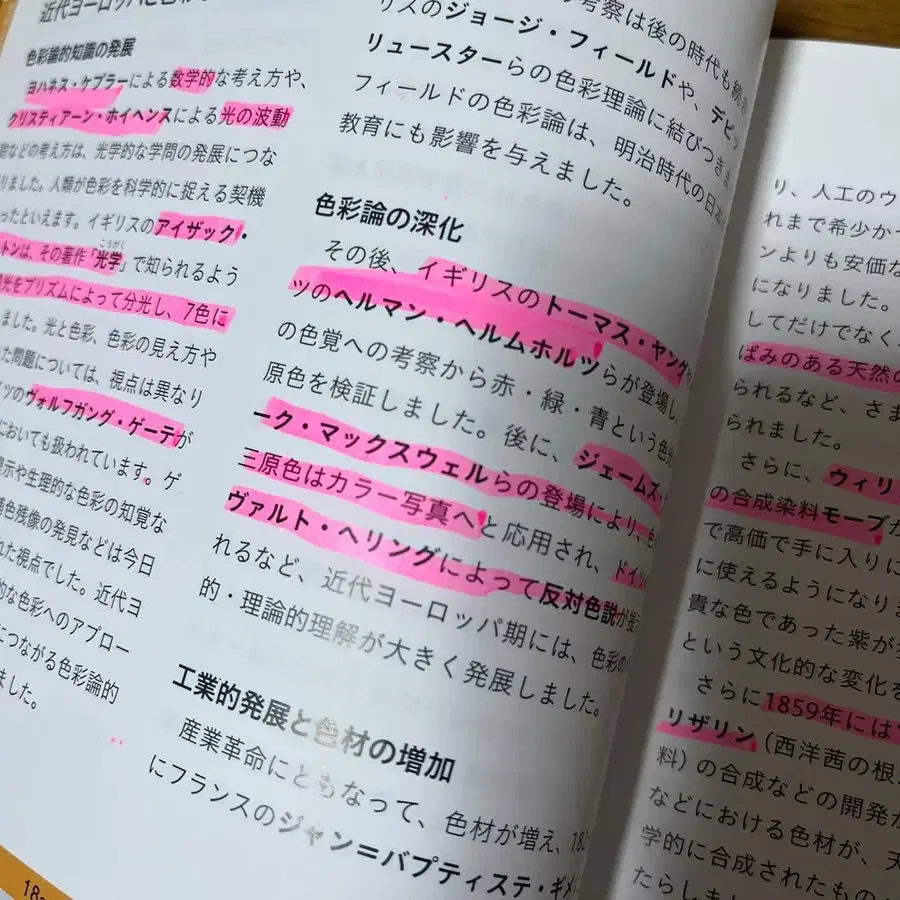 近代ヨーロッパと色彩
色彩論的知識の発展
ヨハネス・ケプラーによる数学的な考え方や、
クリスティアーン・ホイヘンスによる光の波動
などの考え方は、光学的な学問の発展につな
りました。人類が色彩を科学的に捉える契機
ったといえます。イギリスのアイザック・
トンは、その著作「光学」で知られるよう
こうがく
光をプリズムによって分光し、7色に
ました。光と色彩、色彩の見え方や
た問題については、視点は異なり
ツのヴォルフガング・ゲーテが
においても扱われています。ゲ
示や生理的な色彩の知覚な
色残像の発見などは今日
れた視点でした。近代ヨ
的な色彩へのアプロー
につながる色彩論的
ました。
考察は後の時代も続
リスのジョージ・フィールドや、デビッ
リュースターらの色彩理論に結びつきま
フィールドの色彩論は、明治時代の日本
教育にも影響を与えました。
色彩論の深化
その後、イギリスのトーマス・ヤング
ツのヘルマン・ヘルムホルツらが登場し、
の色覚への考察から赤・緑・青という色光
原色を検証しました。後に、ジェームズ・
ーク・マックスウェルらの登場により、色
三原色はカラー写真へと応用され、ドイツ
ヴァルト・ヘリングによって反対色説が
れるなど、近代ヨーロッパ期には、色彩の
的・理論的理解が大きく発展しました。
工業的発展と色材の増加
産業革命にともなって、色材が増え、182
にフランスのジャン＝バプティステ・ギメ
18
り、人工のウ
れまで希少か
ンよりも安価な
になりました。
してだけでなく
ばみのある天然の
られるなど、さま
られました。
さらに、ウィリ
の合成染料モーブが
で高価で手に入りに
に使えるようになりま
貴な色であった紫が
という文化的な変化を
さらに1859年には
リザリン（西洋茜の根
料）の合成などの開発が
などにおける色材が、天
学的に合成されたもの
たらしま